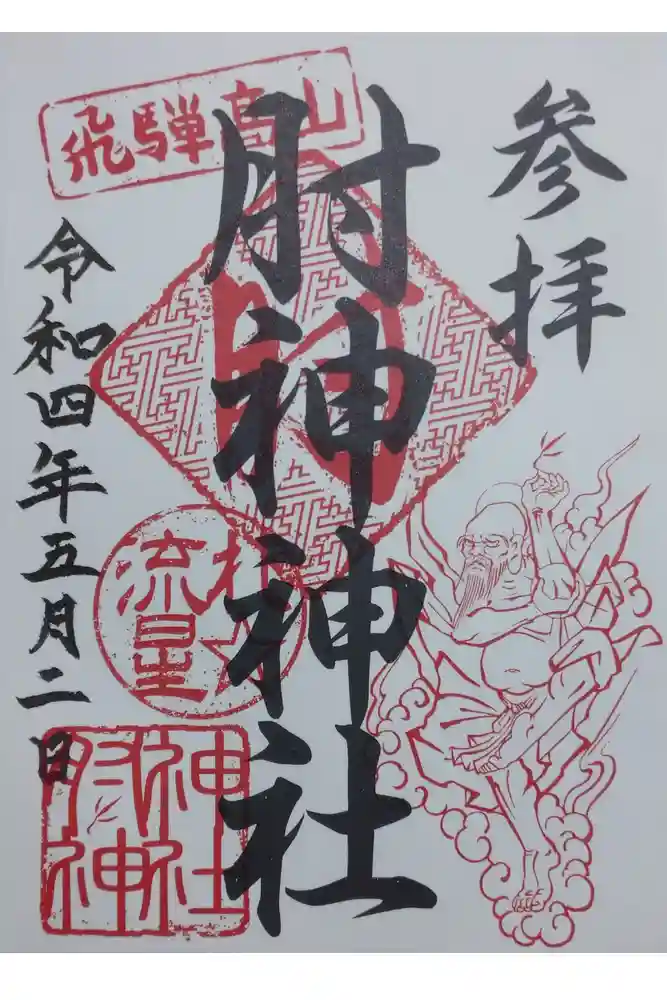 参拝
飛騨高山
肘神神社
令和四年五月二日
流星
神社
肘神